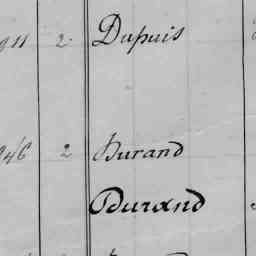 911 2 Dupuis
946 2 Durand
Durand